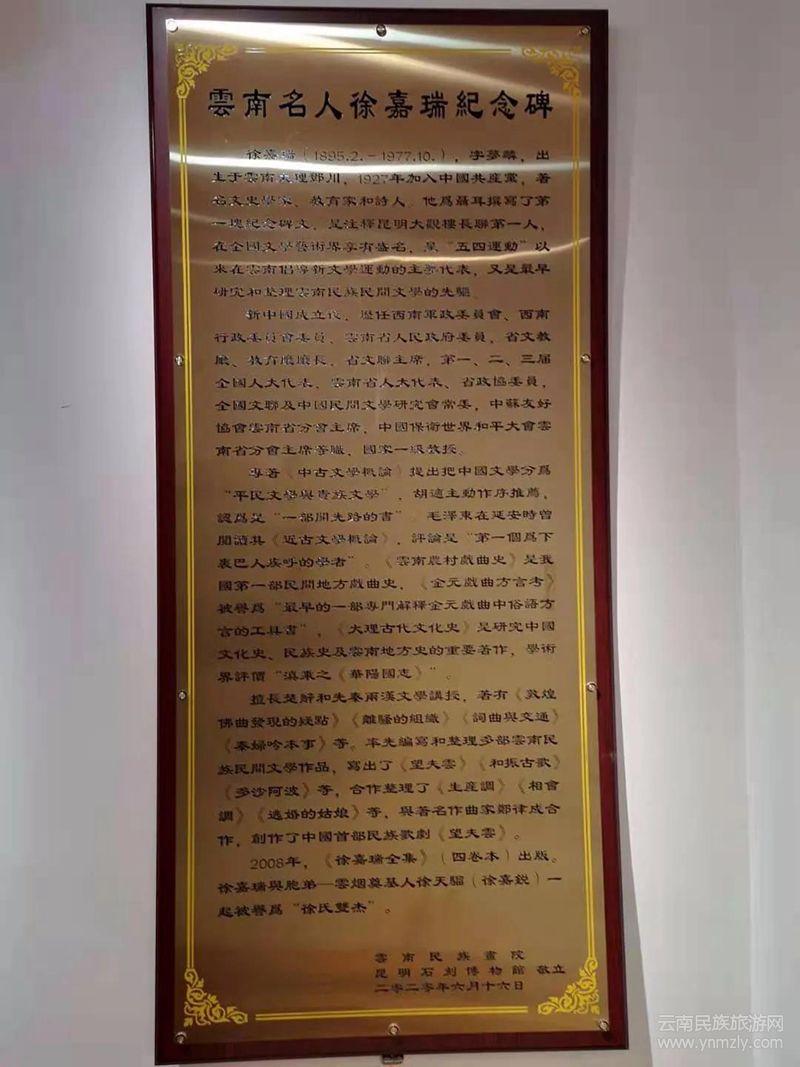 雲南名人徐嘉瑞紀念碑
徐嘉瑞（1895.2.－1977.10.），字夢麟，出
生于雲南大理鄧川，1927年加入中國共産黨，著
名文史學家、教育家和詩人。他爲聶耳撰寫了第
一塊紀念碑文，是注釋昆明大觀樓長聯第一人，
在全國文學藝術界享有盛名，是“五四運動”以
來在雲南倡導新文學運動的主要代表，又是最早
研究和整理雲南民族民間文學的先驅。
新中國成立後，歷任西南軍政委員會、西南
行政委員會委員，雲南省人民政府委員，省文教
廳、教育廳廳長，省文聯主席，第一、二、三届
全國人大代表、雲南省人大代表、省政協委員，
全國文聯及中國民間文學研究會常委，中蘇友好
協會雲南省分會主席，中國保衛世界和平大會雲
南省分會主席等職，國家一級教授。
專著《中古文學概論》提出把中國文學分爲
“平民文學與貴族文學”，胡適主動作序推薦，
認爲是“一部開先路的書”。毛澤東在延安時曾
閲讀其《近古文學概論》，評論是“第一個爲下
裏巴人疾呼的學者”。《雲南農村戲曲史》是我
國第一部民間地方戲曲史，《金元戲曲方言考》
被譽爲“最早的一部專門解釋金元戲曲中俗語方
言的工具書”，《大理古代文化史》是研究中國
文化史、民族史及雲南地方史的重要著作，學術
界評價“滇東之《華陽國志》”。
擅長楚辭和先秦兩漢文學講授，著有《敦煌
佛曲發現的疑點》《離騷的組織》《詞曲與交通》
《秦婦吟本事》等。率先編寫和整理多部雲南民
族民間文學作品，寫出了《望夫雲》《和振古歌》
《多沙阿波》等，合作整理了《生産調》《相會
調》《逃婚的姑娘》等，與著名作曲家鄭律成合
作，創作了中國首部民族歌劇《望夫雲》。
2008年，《徐嘉瑞全集》（四卷本）出版。
徐嘉瑞與胞弟—雲烟奠基人徐天騮（徐嘉鋭）一
起被譽爲“徐氏雙杰”。
雲南民族畫院
昆明石刻博物館 敬立
二零二零年六月十六日
云南民族旅游网
www.ynmzly.com